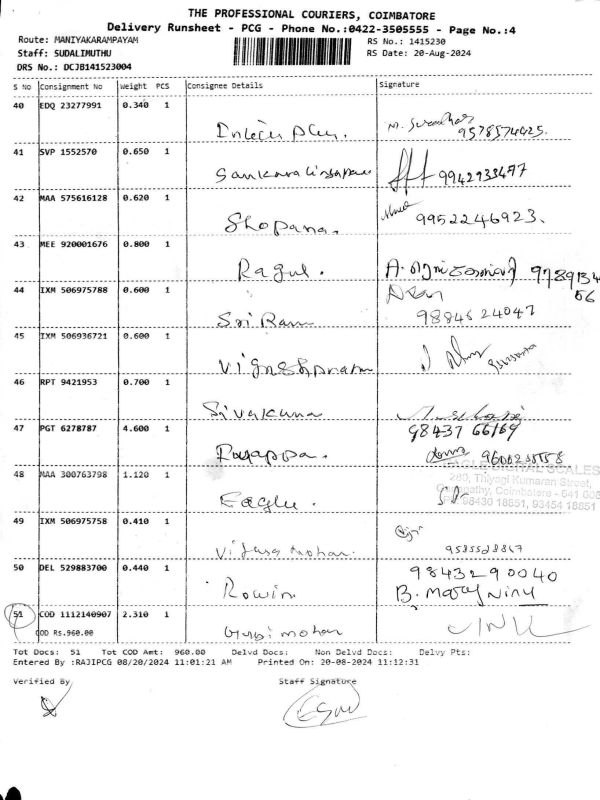 THE PROFESSIONAL COURIERS, COIMBATORE
Delivery Runsheet - PCG - Phone No.:0422-3505555 - Page No.:4
Route: MANIYAKARAMPAYAM RS No.: 1415230
Staff: SUDALIMUTHU RS Date: 20-Aug-2024
DRS No.: DCJB141523004
S No Consignment No Weight PCS Consignee Details Signature
40 EDQ 23277991 0.340 1
9578574425.
41 SVP 1552570 0.650 1
9942933477
42 MAA 575616128 0.620 1
Shopana. 9952246923.
43 MEE 920001676 0.800 1
Ragul.
44 IXM 506975788 0.600 1
Sri Ram
45 IXM 506936721 0.600 1
46 RPT 9421953 0.700 1
Sivakuma
47 PGT 6278787 4.600 1 98437 66169
Rayappa.
EAGLE DIGITAL SCALES
48 MAA 300763798 1.120 1 280, Thiyagi Kumaran Street,
Coimbatore - 641 00
08430 18851, 93454 18851
Eagle.
49 IXM 506975758 0.410 1
mohan.
50 DEL 529883700 0.440 1 9843290040
Rowin B.
51 COD 1112140907 2.310 1
COD Rs.960.00 mohan
Tot Docs: 51 Tot COD Amt: 960.00 Delvd Docs: Non Delvd Docs: Delvy Pts:
Entered By :RAJIPCG 08/20/2024 11:01:21 AM Printed On: 20-08-2024 11:12:31
Verified By Staff Signature